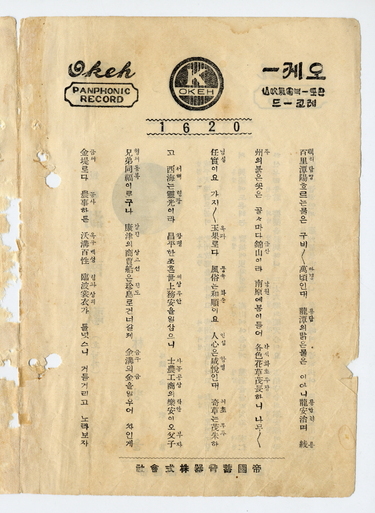 Okeh
PANPHONIC
RECORD
K
OKEH
오케ー
레코ー드
1620
百里潭陽흐르는물은 구비〱萬頃인대 龍潭의맑은물은 이아니龍安治며 綾
州의붉은꽃은 골々마다錦山이라 南原에봄이들어 各色花草茂長하니 나무〱
任實이요 가지〱玉果로다 風俗은和順이요 人心은咸悅인대 奇草는茂朱하
고 西海는靈光이라 昌平한조흔世上務安을일삼으니 士農工商의樂安이오父子
兄弟同福이로구나 康津의商賈船은珍島로건너갈제 金溝의金을일우어 싸인게
金堤로다 農事하든 沃溝百姓 臨波衣가 둘넛스니 거들거리고 노라보자
帝國蓄音器株式會社